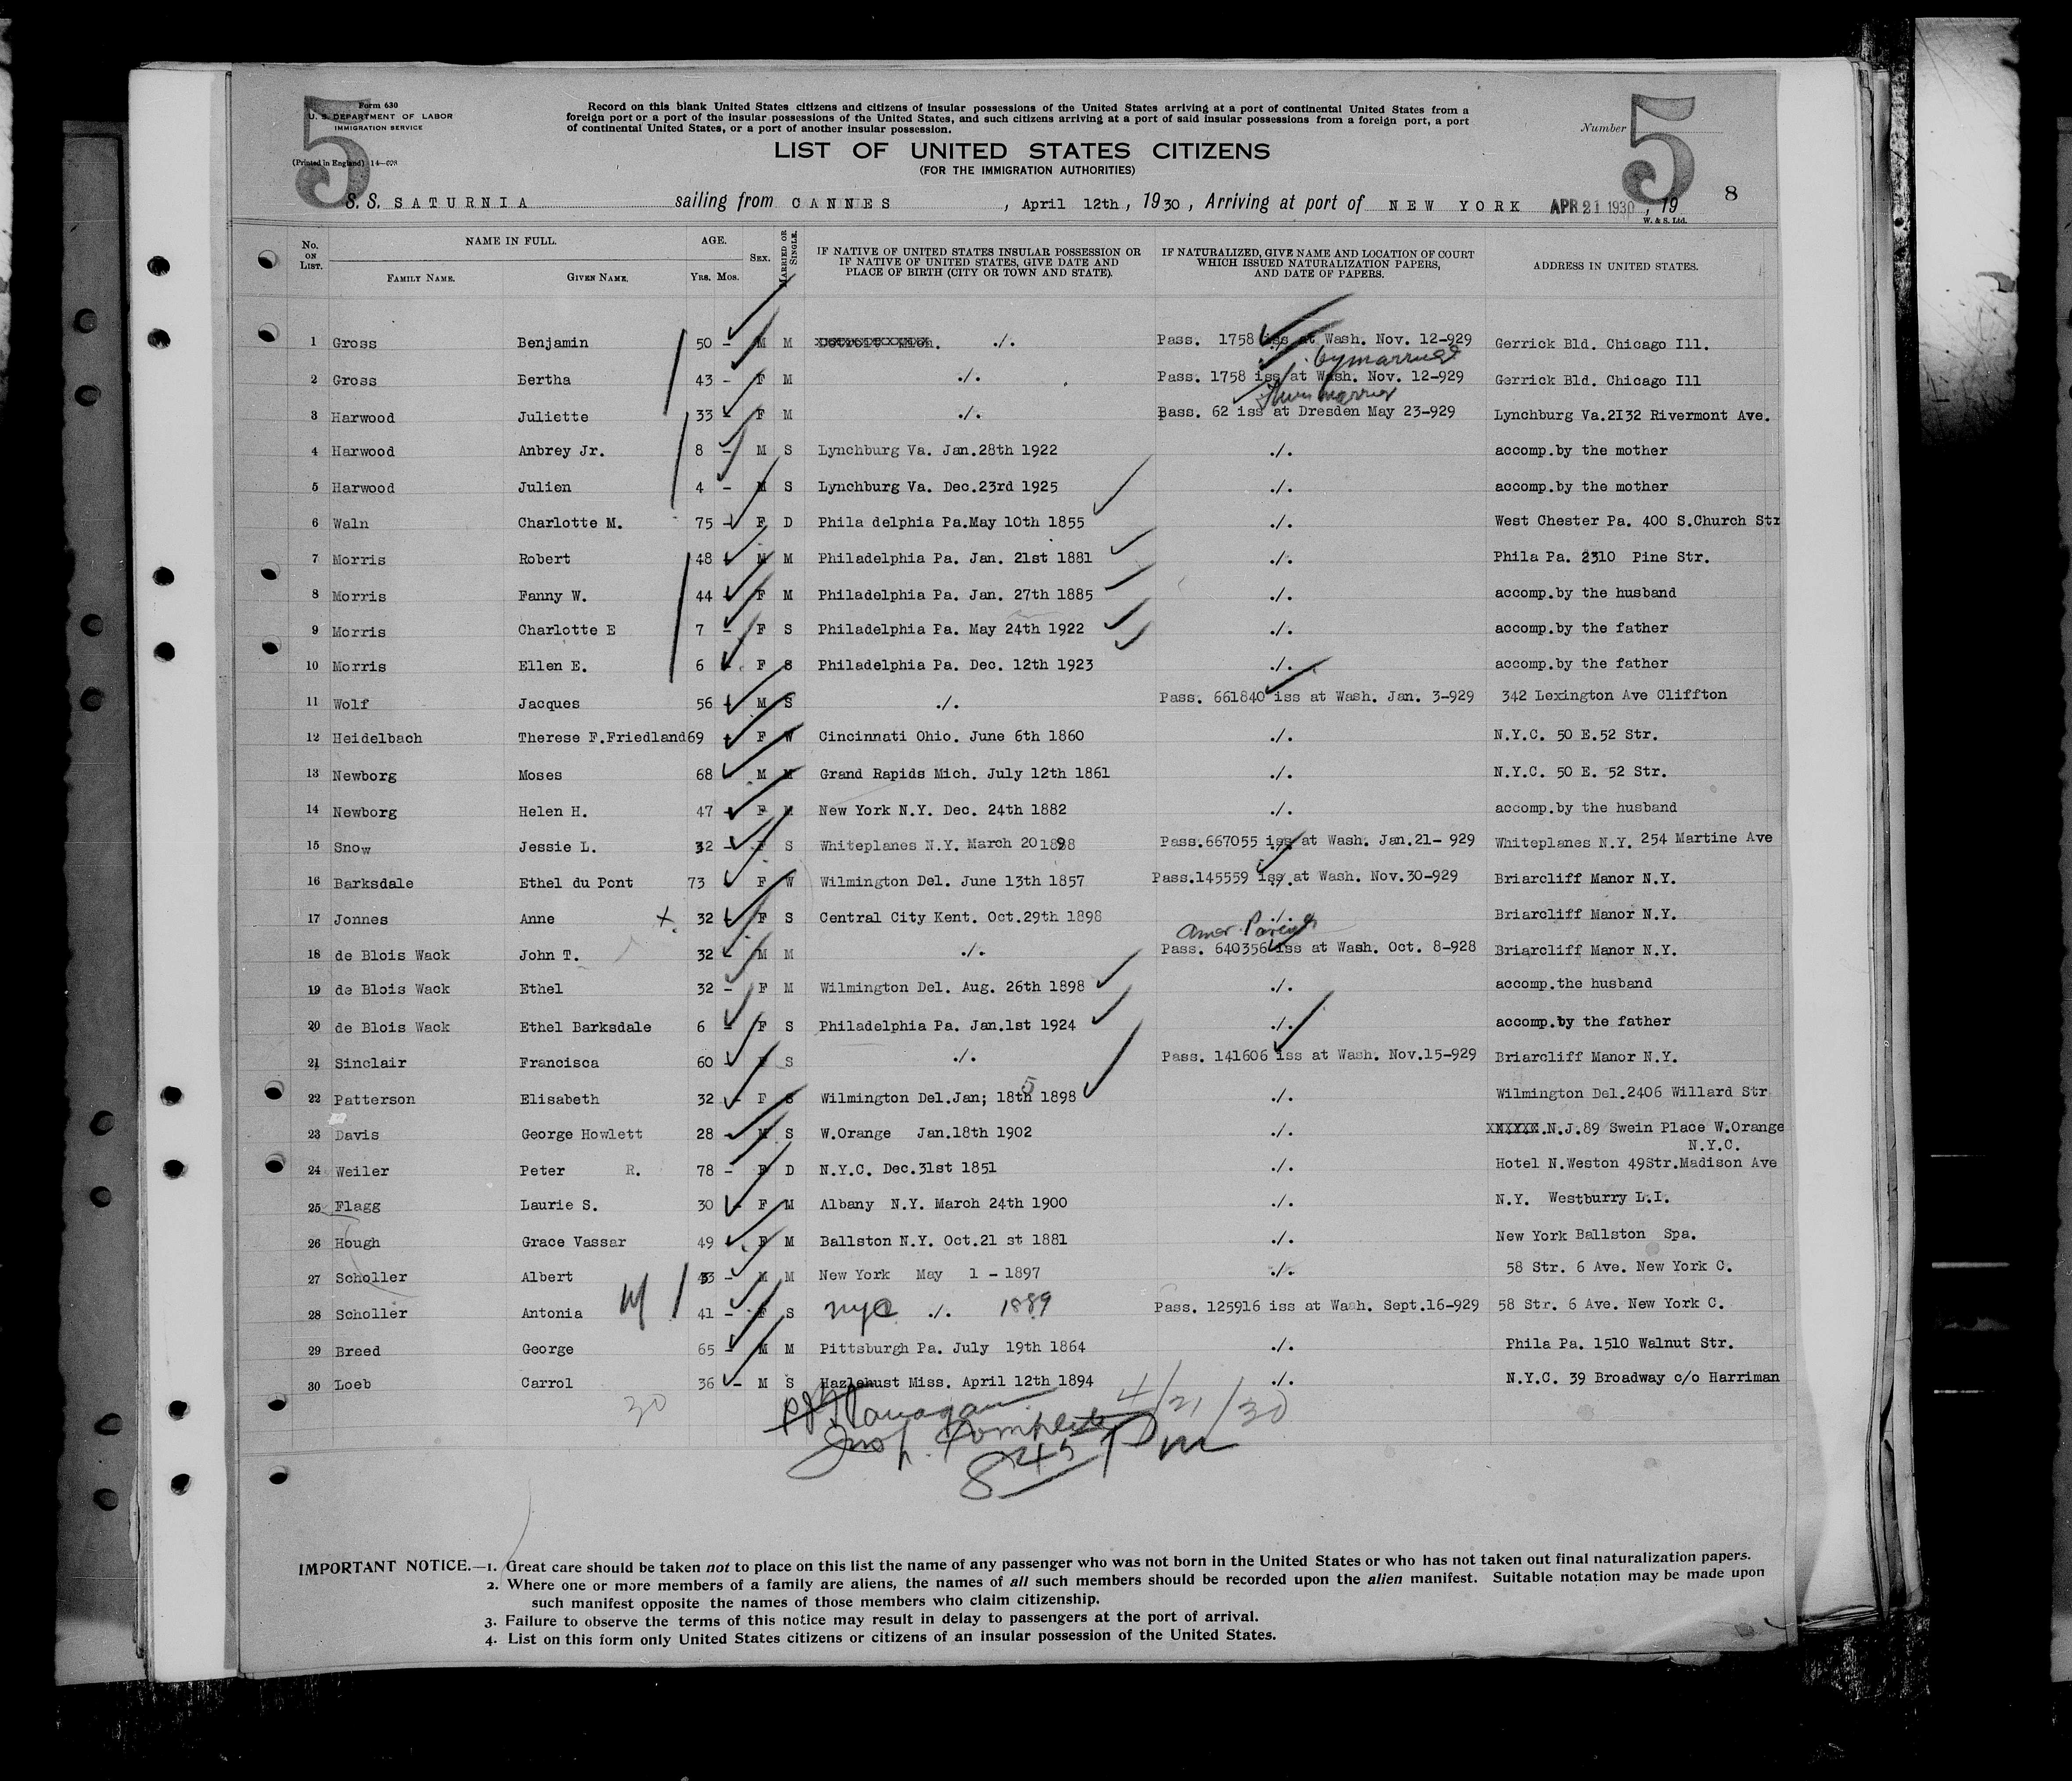 Form 630
U. S. DEPARTMENT OF LABOR
IMMIGRATION SERVICE
(Printed in England) 14—
5
Record on this blank United States citizens and citizens of insular possessions of the United States arriving at a port of continental United States from a
foreign port or a port of the insular possessions of the United States, and such citizens arriving at a port of said insular possessions from a foreign port, a port
of continental United States, or a port of another insular possession.
Number 5
LIST OF UNITED STATES CITIZENS
(FOR THE IMMIGRATION AUTHORITIES)
8
S. S. SATURNIA sailing from CANNES, April 12th, 1930, Arriving at port of NEW YORK APR 21 1930, 19
W. & S. Ltd.
No. ON LIST. NAME IN FULL. AGE. SEX. MARRIED OR SINGLE. IF NATIVE OF UNITED STATES INSULAR POSSESSION OR IF NATIVE OF UNITED STATES, GIVE DATE AND PLACE OF BIRTH (CITY OR TOWN AND STATE). IF NATURALIZED, GIVE NAME AND LOCATION OF COURT WHICH ISSUED NATURALIZATION PAPERS, AND DATE OF PAPERS. ADDRESS IN UNITED STATES.
FAMILY NAME. GIVEN NAME. YRS. MOS.
1 Gross Benjamin 50 - M M ./. Pass. 1758 iss at Wash. Nov. 12-929 Gerrick Bld. Chicago Ill.
by marriage
2 Gross Bertha 43 - F M ./. Pass. 1758 iss at Wash. Nov. 12-929 Gerrick Bld. Chicago Ill
3 Harwood Juliette 33 - F M ./. Pass. 62 iss at Dresden May 23-929 Lynchburg Va.2I32 Rivermont Ave.
4 Harwood Anbrey Jr. 8 - M S Lynchburg Va. Jan.28th 1922 ./. accomp.by the mother
5 Harwood Julien 4 - M S Lynchburg Va. Dec.23rd 1925 ./. accomp.by the mother
6 Waln Charlotte M. 75 - F D Phila delphia Pa.May 10th 1855 ./. West Chester Pa. 400 S.Church Str
7 Morris Robert 48 - M M Philadelphia Pa. Jan. 21st 1881 ./. Phila Pa. 2310 Pine Str.
8 Morris Fanny W. 44 - F M Philadelphia Pa. Jan. 27th 1885 ./. accomp.by the husband
9 Morris Charlotte E 7 - F S Philadelphia Pa. May 24th 1922 ./. accomp.by the father
10 Morris Ellen E. 6 - F S Philadelphia Pa. Dec. 12th 1923 ./. accomp.by the father
11 Wolf Jacques 56 - M S ./. Pass. 661840 iss at Wash. Jan. 3-929 342 Lexington Ave Cliffton
12 Heidelbach Therese F.Friedland 69 - F W Cincinnati Ohio. June 6th 1860 ./. N.Y.C. 50 E.52 Str.
13 Newborg Moses 68 - M M Grand Rapids Mich. July 12th 1861 ./. N.Y.C. 50 E. 52 Str.
14 Newborg Helen H. 47 - F M New York N.Y. Dec. 24th 1882 ./. accomp.by the husband
15 Snow Jessie L. 32 - F S Whiteplanes N.Y. March 20 1898 Pass.667055 iss at Wash. Jan.21- 929 Whiteplanes N.Y. 254 Martine Ave
16 Barksdale Ethel du Pont 73 - F W Wilmington Del. June 13th 1857 Pass.145559 iss at Wash. Nov.30-929 Briarcliff Manor N.Y.
17 Jonnes Anne x 32 - F S Central City Kent. Oct.29th 1898 ./. Briarcliff Manor N.Y.
Amer. Parents
18 de Blois Wack John T. 32 - M M ./. Pass. 640356 iss at Wash. Oct. 8-928 Briarcliff Manor N.Y.
19 de Blois Wack Ethel 32 - F M Wilmington Del. Aug. 26th 1898 ./. accomp.the husband
20 de Blois Wack Ethel Barksdale 6 - F S Philadelphia Pa. Jan.1st 1924 ./. accomp.by the father
21 Sinclair Francisca 60 - F S ./. Pass. 141606 iss at Wash. Nov.15-929 Briarcliff Manor N.Y.
22 Patterson Elisabeth 32 - F S Wilmington Del.Jan; 18th 1898 ./. Wilmington Del.2406 Willard Str
5
23 Davis George Howlett 28 - M S W.Orange Jan.18th 1902 ./. N.J.89 Swein Place W.Orange
N.Y.C.
24 Weiler Peter R. 78 - F D N.Y.C. Dec.31st 1851 ./. Hotel N.Weston 49Str.Madison Ave
25 Flagg Laurie S. 30 - F M Albany N.Y. March 24th 1900 ./. N.Y. Westburry L.I.
26 Hough Grace Vassar 49 - F M Ballston N.Y. Oct.21 st 1881 ./. New York Ballston Spa.
27 Scholler Albert 33 - M M New York May 1 - 1897 ./. 58 Str. 6 Ave. New York C.
28 Scholler Antonia 41 - F S nyc ./. 1889 Pass. 125916 iss at Wash. Sept.16-929 58 Str. 6 Ave. New York C.
29 Breed George 65 - M M Pittsburgh Pa. July 19th 1864 ./. Phila Pa. 1510 Walnut Str.
30 Loeb Carrol 36 - M S Hazlehust Miss. April 12th 1894 ./. N.Y.C. 39 Broadway c/o Harriman
30
4/21/30
Insp. Complete
8 45 Pm
IMPORTANT NOTICE.—1. Great care should be taken not to place on this list the name of any passenger who was not born in the United States or who has not taken out final naturalization papers.
2. Where one or more members of a family are aliens, the names of all such members should be recorded upon the alien manifest. Suitable notation may be made upon
such manifest opposite the names of those members who claim citizenship.
3. Failure to observe the terms of this notice may result in delay to passengers at the port of arrival.
4. List on this form only United States citizens or citizens of an insular possession of the United States.